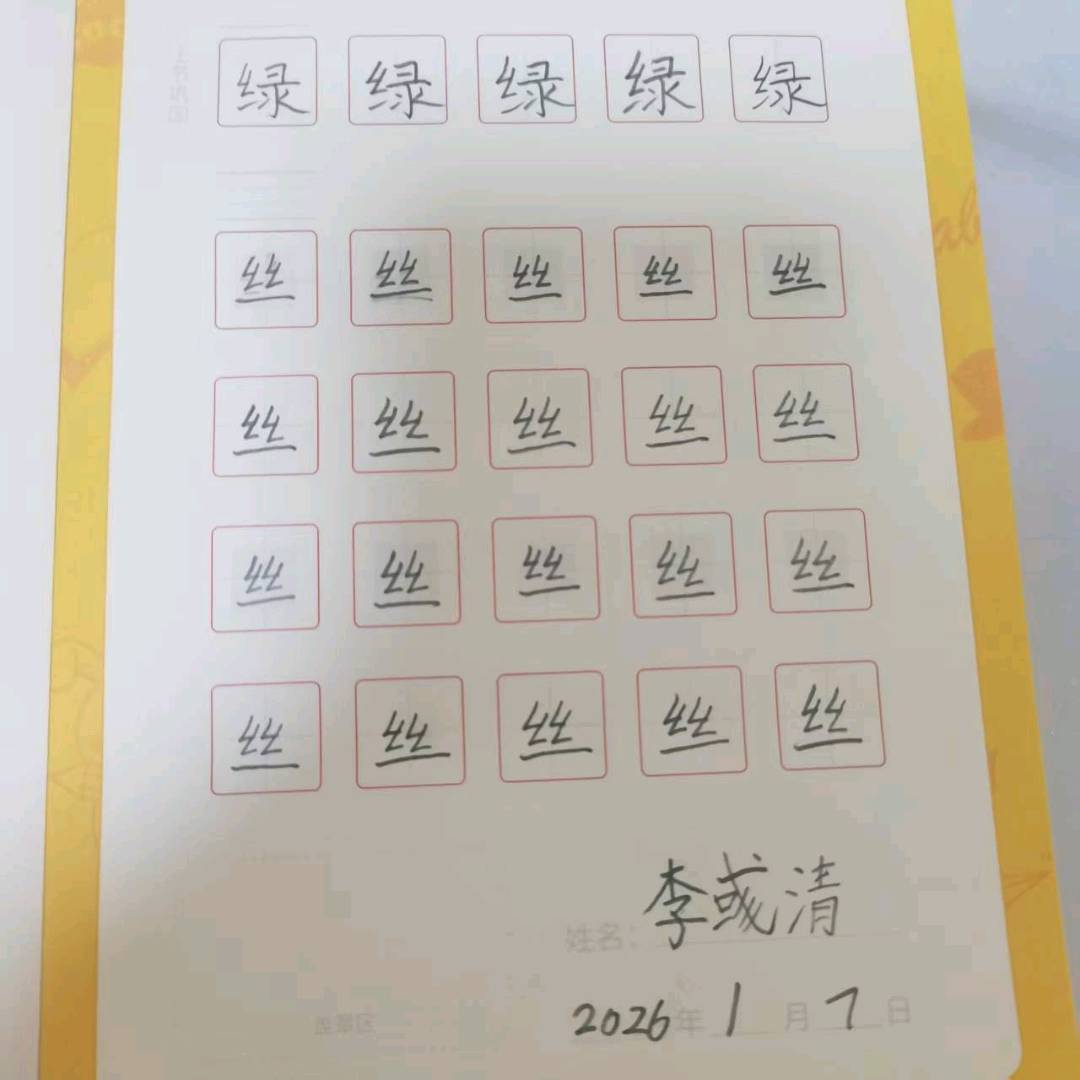 绿 绿 绿 绿 绿
丝 丝 丝 丝 丝
丝 丝 丝 丝 丝
丝 丝 丝 丝 丝
丝 丝 丝 丝 丝
姓名：李彧清
2026年1月7日